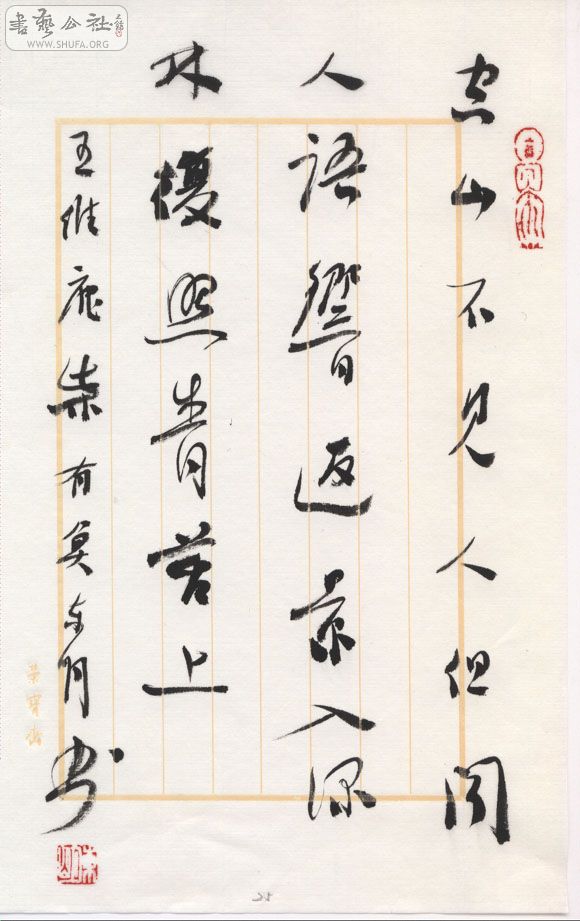 書藝公社
WWW.SHUFA.ORG
空山不見人但聞
人語響返景入深
林復照青苔上
王維鹿柴 书
榮寶齋